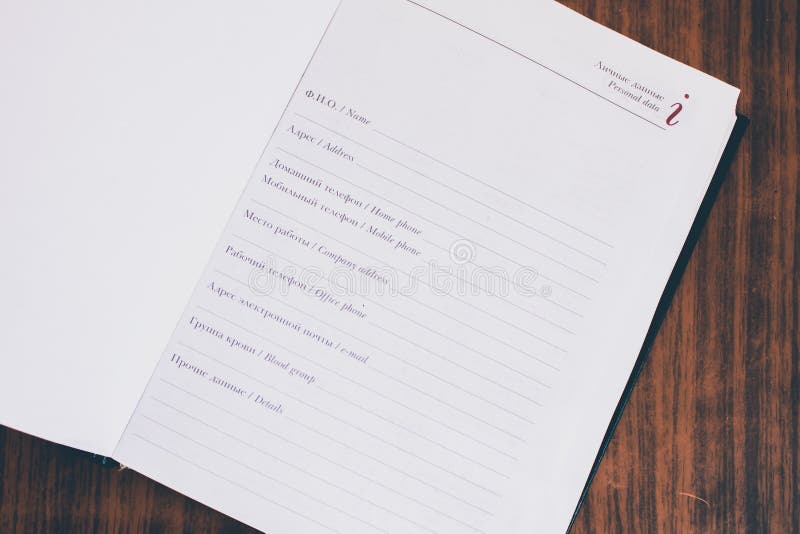 Личные данные
Personal data
i
Ф.И.О. / Name
Адрес / Address
Домашний телефон / Home phone
Мобильный телефон / Mobile phone
Место работы / Company address
Рабочий телефон / Office phone
Адрес электронной почты / e-mail
Группа крови / Blood group
Прочие данные / Details
dreamstime